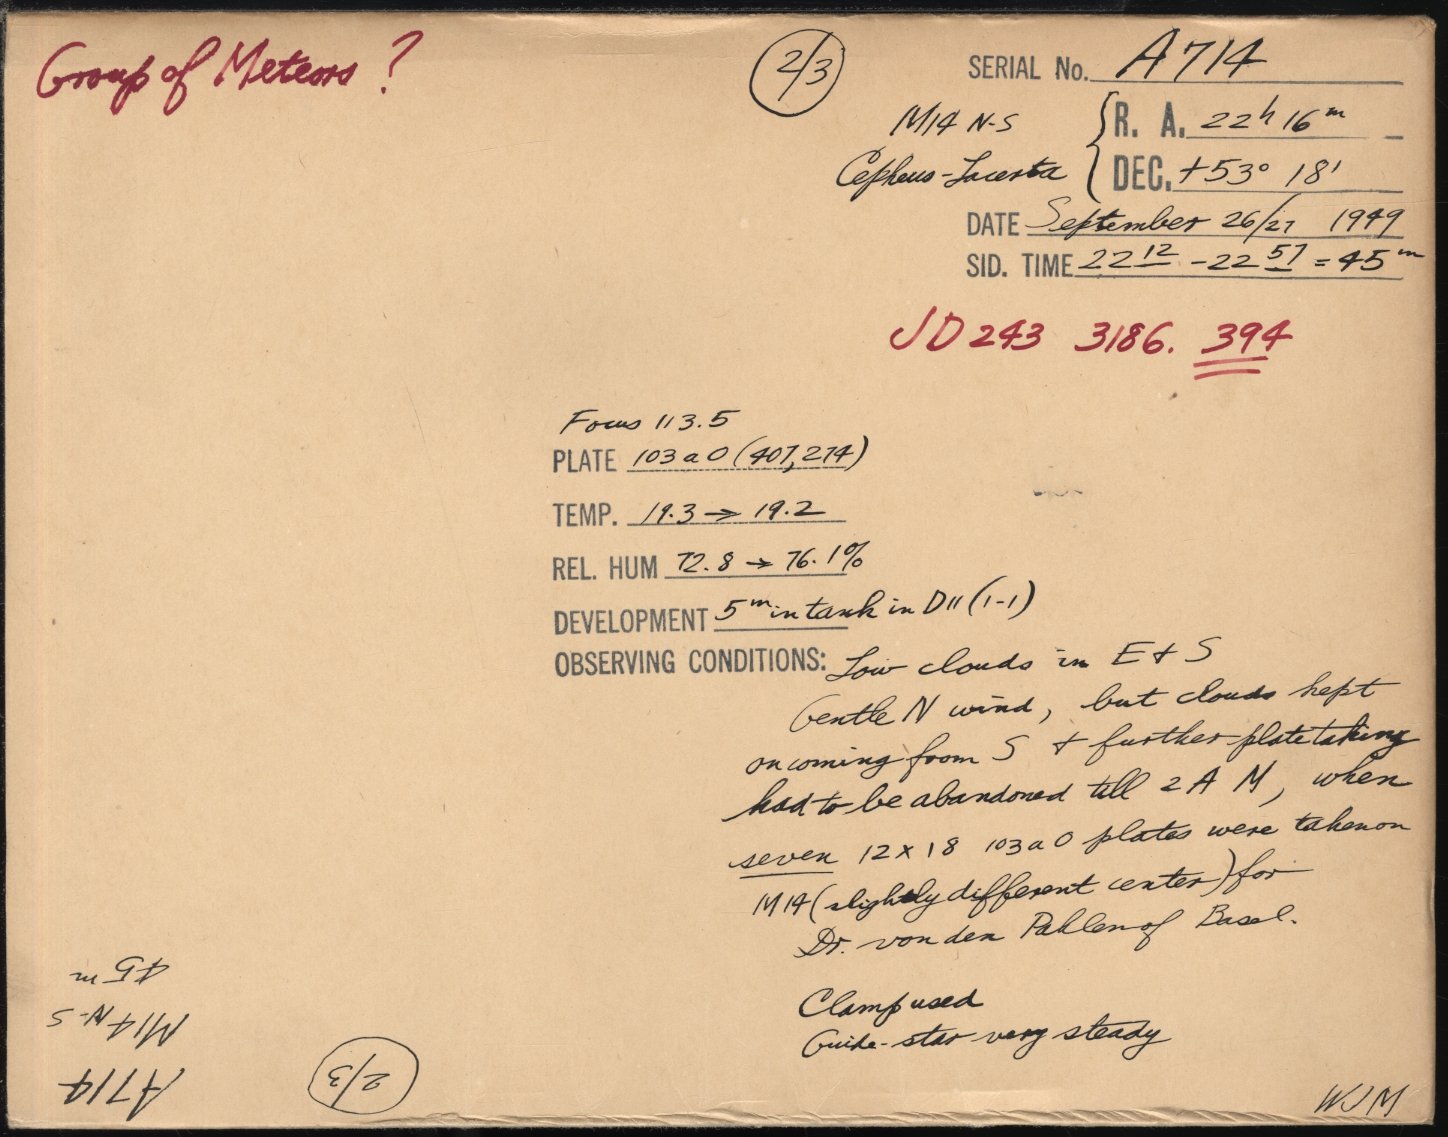 Group of Meteors ?
2/3
SERIAL No. A714
M14 N-S
R. A. 22h 16m
Cepheus-Lacerta
DEC. +53° 18'
DATE September 26/27 1949
SID. TIME 22 12 - 22 57 = 45m
JD 243 3186. 394
Focus 113.5
PLATE 103 a O (407,274)
TEMP. 19.3 → 19.2
REL. HUM 72.8 → 76.1%
DEVELOPMENT 5m in tank in D11 (1-1)
OBSERVING CONDITIONS: Low clouds in E + S
Gentle N wind, but clouds kept
on coming from S + further plate taking
had to be abandoned till 2 A M, when
seven 12 x 18 103 a O plates were taken on
M14 (slightly different center) for
Dr. von den Pahlen of Basel.
Clamp used
Guide-star very steady
WJM
A714
M14 N-S
45 m
2/3